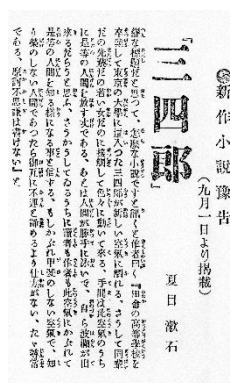 新作小説豫告
(九月一日より掲載)
『三四郎』
夏目漱石
な標題だと思つて、怎麼な小説ですと聞くと作者曰く『田舎の高等學校を
卒業して東京の大學に這入つた三四郎が新しい空氣に觸れる、さうして同輩
だの先輩だの若い女だのに接觸して色々に動いて來る、手間は此空氣のうち
に是等の人間を放す丈である、あとは人間が勝手に泳いで、自ら波瀾が出
來るだらうと思ふ、さうかうしてゐるうちに讀者も作者も此空氣にかぶれて
是等の人間を知る樣になる事と信ずる、もしかぶれ甲斐のしない空氣で、知
り榮のしない人間であつたら御互に不運と諦めるより仕方がない、たゞ尋常
である、摩訶不思議は書けない』と。